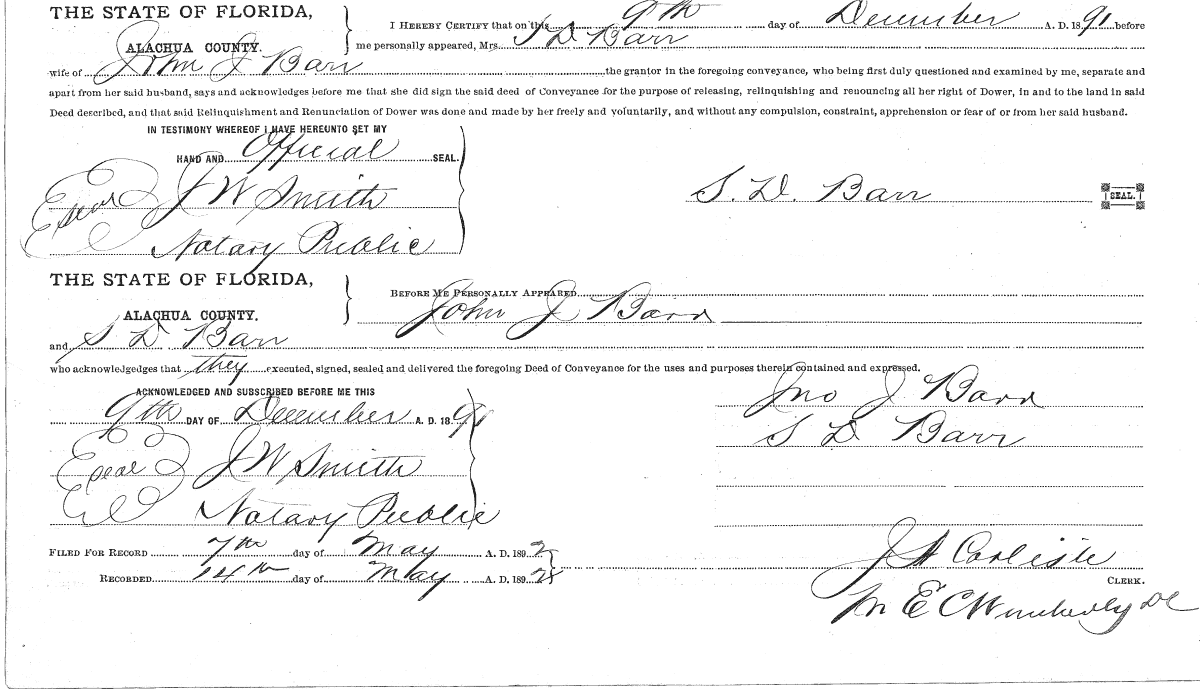 THE STATE OF FLORIDA,
ALACHUA COUNTY.
I HEREBY CERTIFY that on this 9th day of December A. D. 1891 before
me personally appeared, Mrs. S D Barr
wife of John J Barr the grantor in the foregoing conveyance, who being first duly questioned and examined by me, separate and
apart from her said husband, says and acknowledges before me that she did sign the said deed of Conveyance for the purpose of releasing, relinquishing and renouncing all her right of Dower, in and to the land in said
Deed described, and that said Relinquishment and Renunciation of Dower was done and made by her freely and voluntarily, and without any compulsion, constraint, apprehension or fear of or from her said husband.
IN TESTIMONY WHEREOF I HAVE HEREUNTO SET MY
HAND AND Official SEAL.
seal J W Smith
S. D. Barr SEAL.
Notary Public
THE STATE OF FLORIDA,
ALACHUA COUNTY.
BEFORE ME PERSONALLY APPEARED
John J Barr
and S D Barr
who acknowledgedges that they executed, signed, sealed and delivered the foregoing Deed of Conveyance for the uses and purposes therein contained and expressed.
ACKNOWLEDGED AND SUBSCRIBED BEFORE ME THIS
9th DAY OF December A. D. 1891
Jno J Barr
S D Barr
seal J W Smith
Notary Public
FILED FOR RECORD 7th day of May A. D. 1892
RECORDED 14th day of May A. D. 1892
J A Carlisle
CLERK.
M E C Wimberly DC